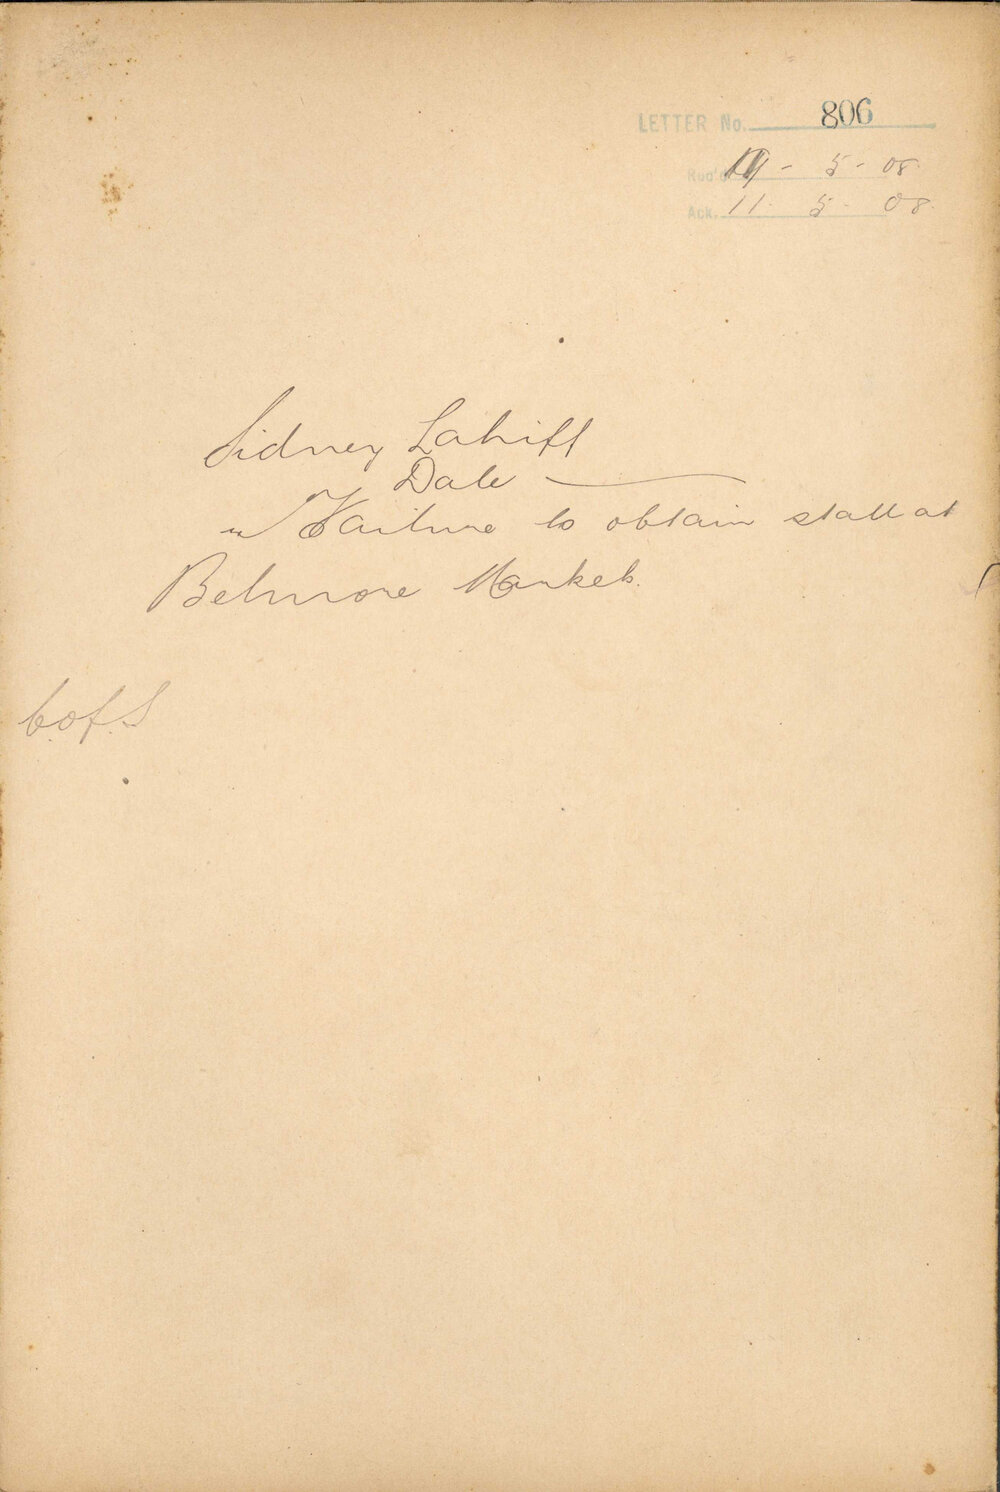 LETTER No. 806
Rec'd - 5 - 08
Ack. 11. 5. 08.
Sidney Lahiff
Dale
Failure to obtain stall at
Belmore Markets.
C.of.S